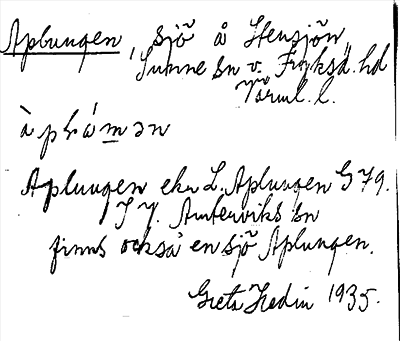 Aplungen, sjö å Stensjön,
Sunne sn v. Fryksd. hd
Värml. l.
Aplungen ek. L. Aplungen G 79.
I Y. Ämterviks sn
finns också en sjö Aplungen.
Greta Hedin 1935.